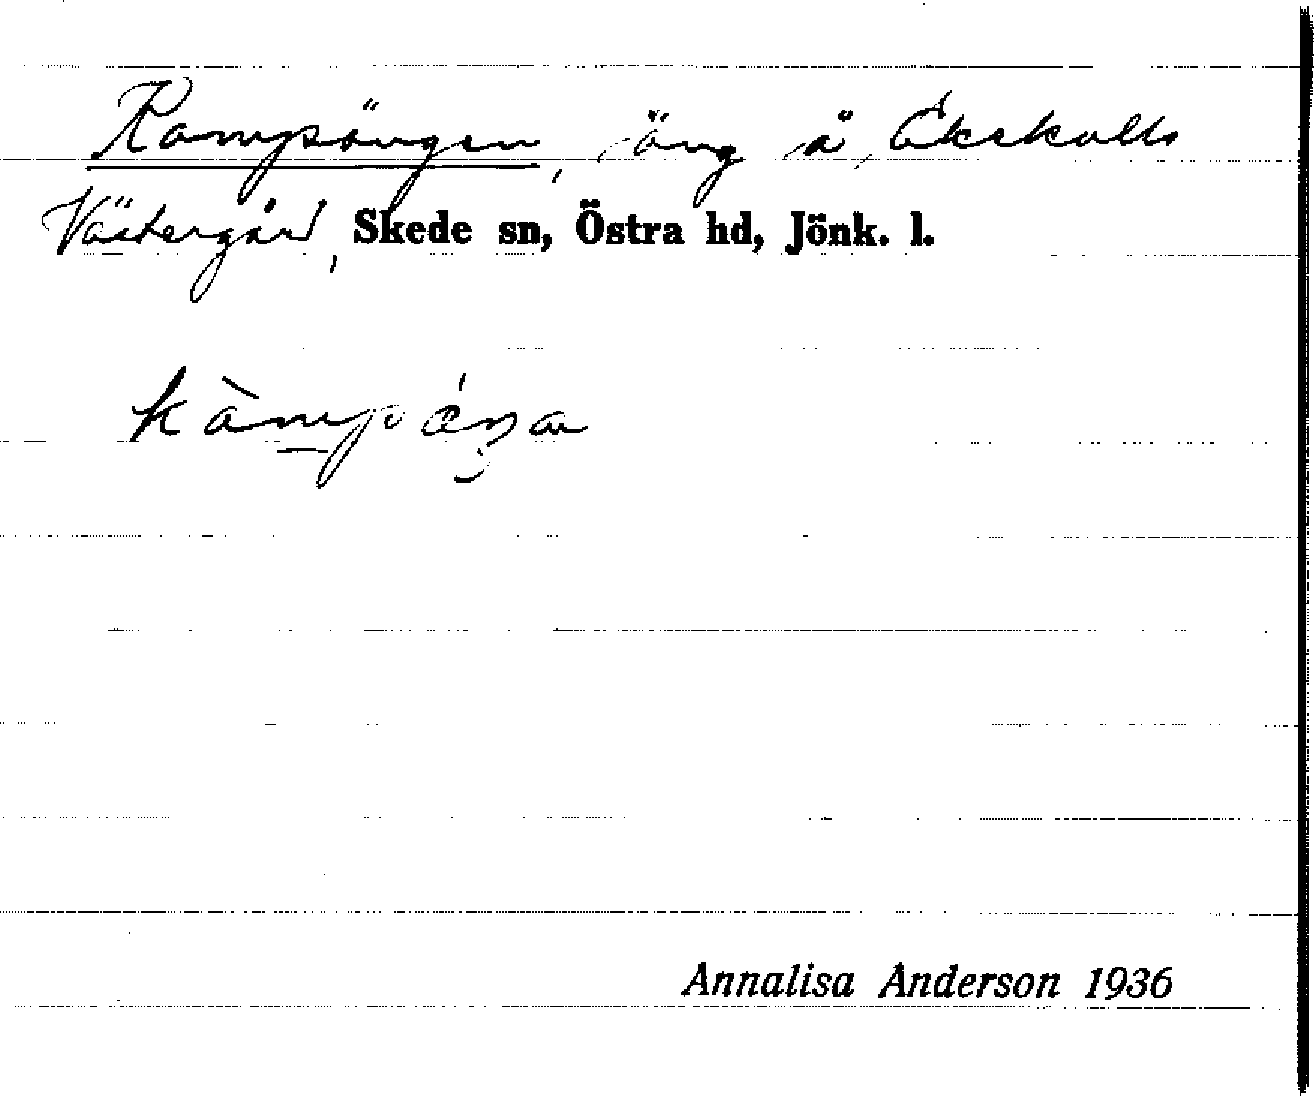 Kampängen, äng å Ekekulls
Västergård, Skede sn, Östra hd, Jönk. l.
Annalisa Anderson 1936